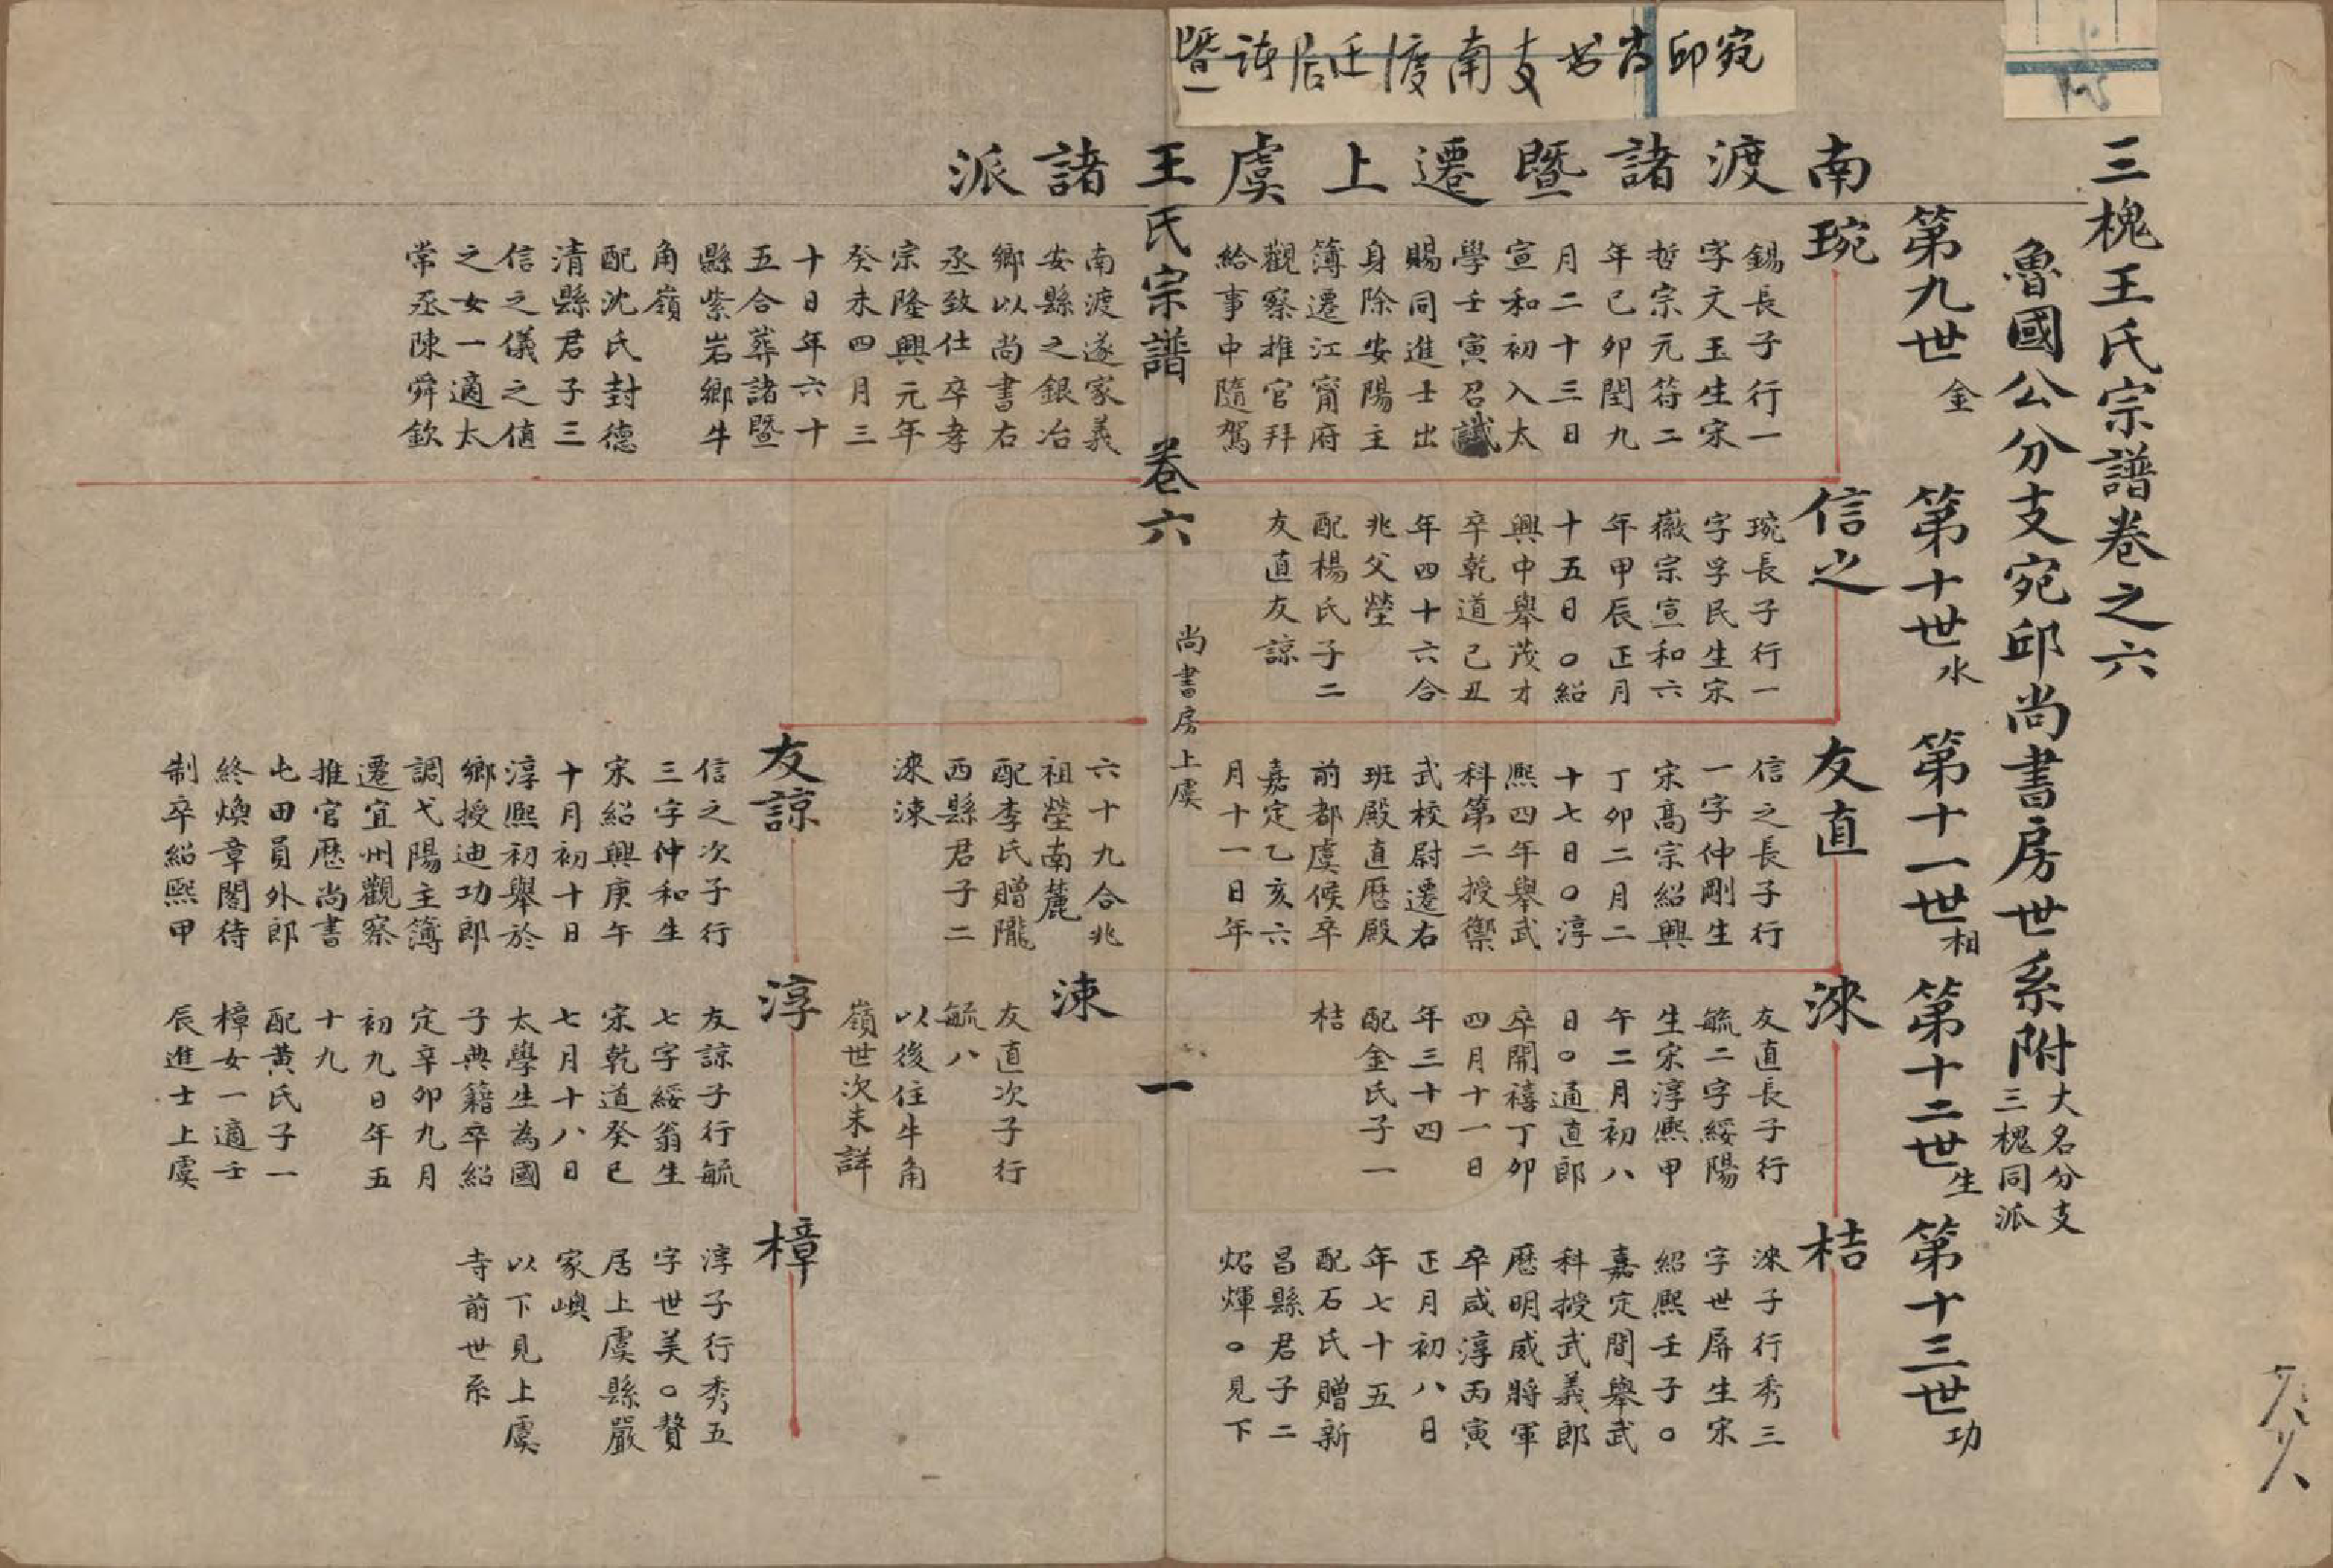 宛邱尚书支南渡迁居诸暨一
三槐王氏宗譜卷之六
魯國公分支宛邱尚書房世系附
大名分支
三槐同派
第九世金
第十世水
第十一世相
第十二世生
第十三世功
南渡諸暨遷上虞王諸派
琬
錫長子行一
字文玉生宋
哲宗元符二
年己卯閏九
月二十三日
宣和初入太
學壬寅召試
賜同進士出
身除安陽主
簿遷江甯府
觀察推官拜
給事中隨駕
南渡遂家義
安縣之銀冶
鄉以尚書右
丞致仕卒孝
宗隆興元年
癸未四月三
十日年六十
五合葬諸暨
縣紫岩鄉牛
角嶺
配沈氏封德
清縣君子三
信之儀之值
之女一適太
常丞陳舜欽
信之
琬長子行一
字孚民生宋
徽宗宣和六
年甲辰正月
十五日〇紹
興中舉茂才
卒乾道己丑
年四十六合
兆父塋
配楊氏子二
友直友諒
友直
信之長子行
一字仲剛生
宋高宗紹興
丁卯二月二
十七日〇淳
熙四年舉武
科第二授禦
武校尉遷右
班殿直歷殿
前都虞候卒
嘉定乙亥六
月十一日年
六十九合兆
祖塋南麓
配李氏贈隴
西縣君子二
淶涑
友諒
信之次子行
三字仲和生
宋紹興庚午
十月初十日
淳熙初舉於
鄉授迪功郎
調弋陽主簿
遷宜州觀察
推官歷尚書
屯田員外郎
終煥章閣待
制卒紹熙甲
淶
友直長子行
毓二字綏陽
生宋淳熙甲
午二月初八
日〇通直郎
卒開禧丁卯
四月十一日
年三十四
配金氏子一
桔
涑
友直次子行
毓八
以後住牛角
嶺世次未詳
淳
友諒子行毓
七字綏翁生
宋乾道癸巳
七月十八日
太學生為國
子典籍卒紹
定辛卯九月
初九日年五
十九
配黃氏子一
樟女一適壬
辰進士上虞
桔
淶子行秀三
字世屏生宋
紹熙壬子〇
嘉定間舉武
科授武義郎
歷明威將軍
卒咸淳丙寅
正月初八日
年七十五
配石氏贈新
昌縣君子二
炤煇〇見下
樟
淳子行秀五
字世美〇贅
居上虞縣嚴
家嶼
以下見上虞
寺前世系
王氏宗譜 卷六 尚書房上虞 一